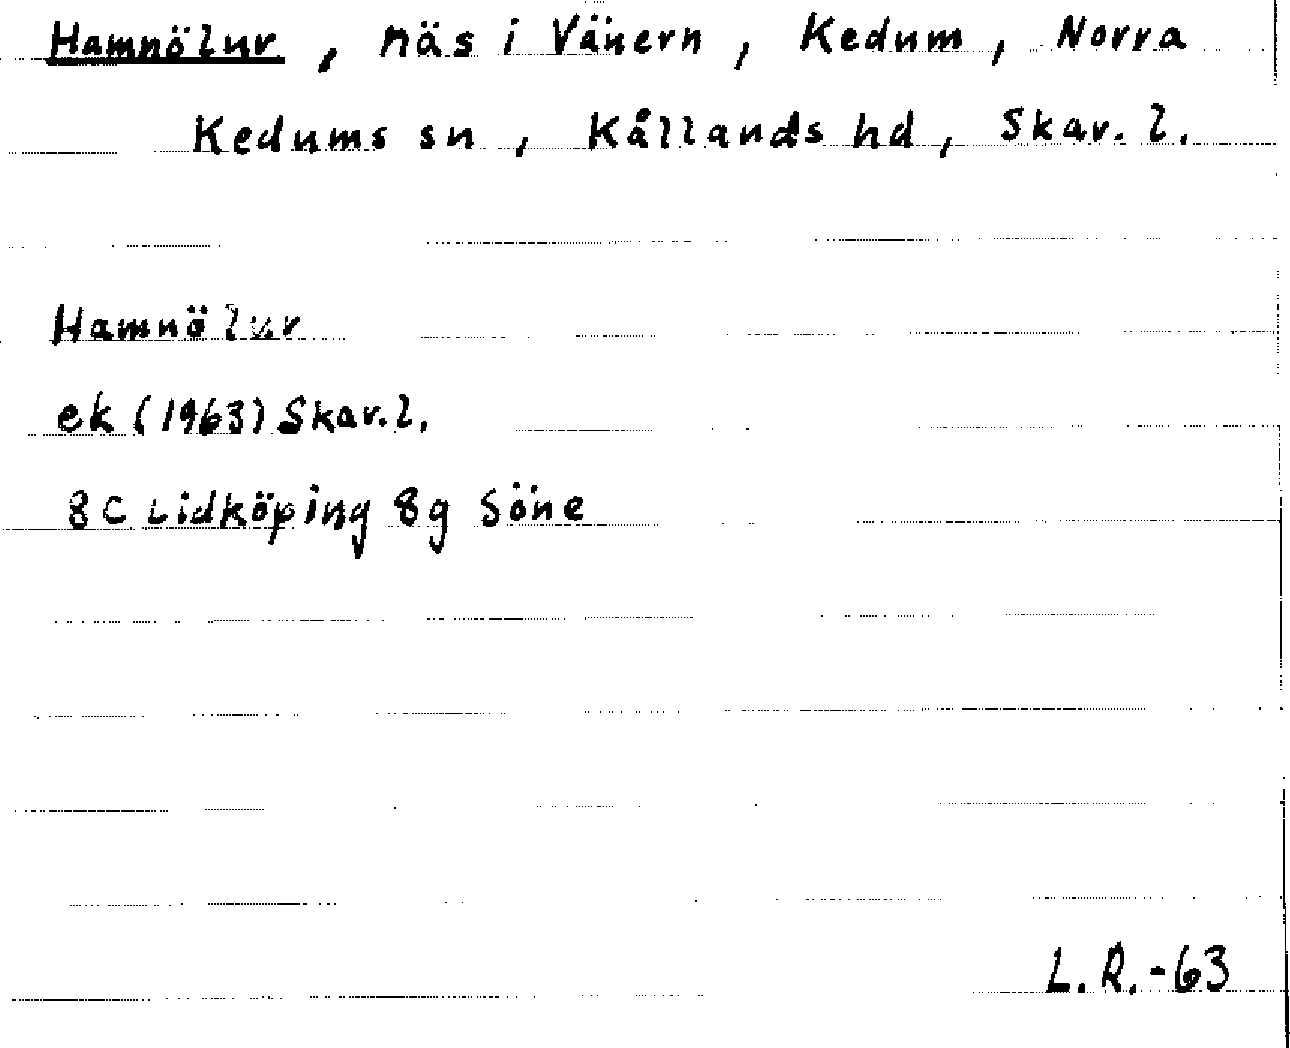 Hamnölur, näs i Vänern, Kedum, Norra
Kedums sn, Kållands hd, Skar. l.
Hamnölur
ek (1963) Skar. l.
8C Lidköping 8g Söne
L.R.-63